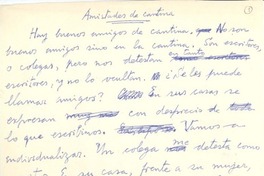 Amistades de cantina
1
Hay buenos amigos de cantina. No son
buenos amigos sino en la cantina. Son escritores,
o colegas, pero nos detestan en tanto
escritores, y no lo ocultan. ¿Se les puede
llamar amigos? En sus casas se
expresan con desprecio de
lo que escribimos. Vamos a
individualizar. Un colega me detesta como
En su casa, frente a su mujer,